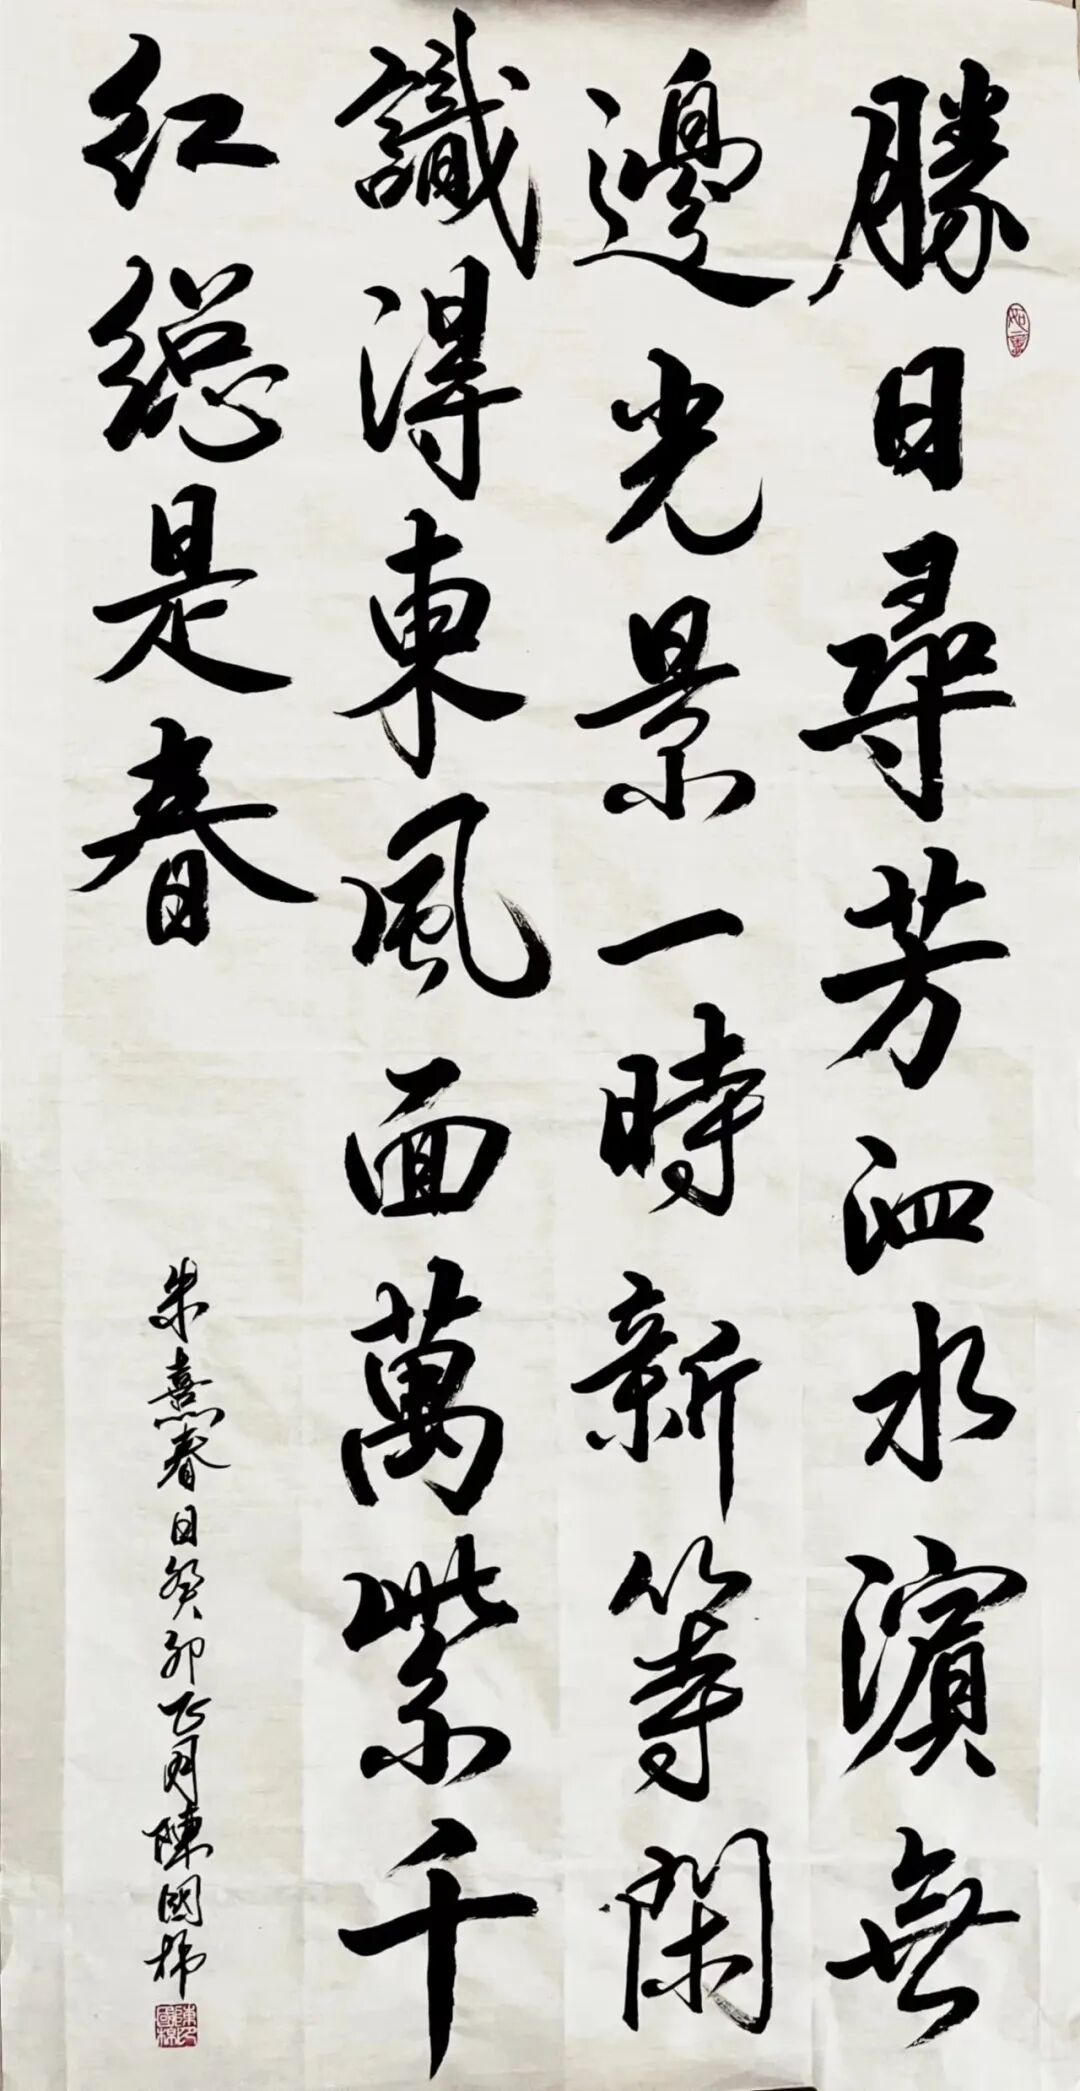 勝日尋芳泗水濱無
邊光景一時新等閑
識得東風面萬紫千
红總是春
朱熹春日癸卯正月陳國栋